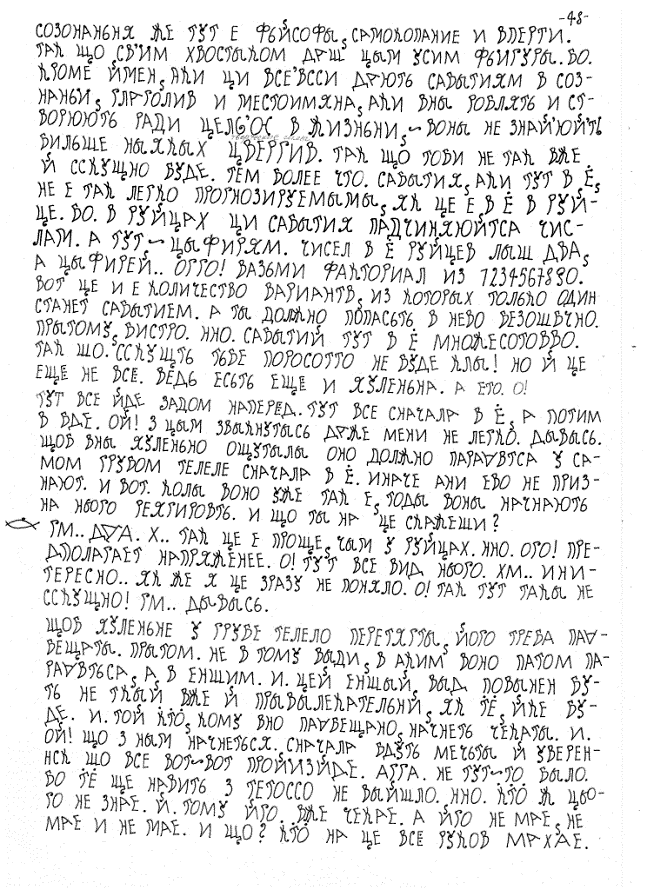 -48-
СОЗОНАНЬНЯ ЖЕ ТУТ Е ФЫЙСОФЫ, САМОКОПАНИЕ И ВПЕРТИ.
ТАК ЩО, СВ'ИМ ХВОСТЫКОМ ДЯЩ ЦЫМ УСИМ ФЫЙГУРЫ. БО.
КРОМЕ ЙМЕН, АКИ ЦИ ВСЕ'ВССИ ДАЮТЬ САБЫТИЯМ В СОЗ-
НАНЬИ, ГЛАГОЛИВ И МЕСТОИМЯНА, АКИ ВНЫ РОБЛЯТЬ И СТ-
ВОРЮЮТЬ РАДИ В ЖИЗНЬНИ, ~ ВОНЫ НЕ ЗНАЙ'ЮЙТЬ
БИЛЬШЕ НЫЯКЫХ ЦВЕРГИВ. ТАК ЩО ТОБИ НЕ ТАК ВЖЕ
Й ССКУЩНО БУДЕ. ТЕМ БОЛЕЕ ЧТО. САБЫТИЯ, АКИ ТУТ В Ё,
НЕ Е ТАК ЛЕГКО ПРОГНОЗИРУЕМЫМЫ, ЯК ЦЕ Е В Ё В РУЙ-
ЦЕ. БО. В РУЙЦАХ ЦИ САБЫТИЯ ПАДЧИНЯЮЙТСА ЧИС-
ЛАМ. А ТУТ ~ ЦЫФИРЯМ. ЧИСЕЛ В Ё РУЙЦЕВ ЛЫШ ДВА,
А ЦЫФИРЕЙ.. ОГГО! ВАЗЬМИ ФАКТОРИАЛ ИЗ 1234567890.
ВОТ ЦЕ И Е КОЛИЧЕСТВО ВАРИАНТВ, ИЗ КОТОРЫХ ТОЛЬКО ОДИН
СТАНЕТ САБЫТИЕМ. А ТЫ ДОЛЖНО ПОПАСЬТЬ В НЕВО БЕЗОШБЧНО.
ПРЫТОМУ, БИСТРО. ННО. САБЫТИЙ ТУТ В Ё МНОЖЕСОТОВВО.
ТАК ЩО. ССКУЩТЬ ТЬБЕ ПОРОСОТТО НЕ БУДЕ КЛЫ! НО Й ЦЕ
ЕЩЕ НЕ ВСЕ. ВЕДЬ ЕСЬТЬ ЕЩЕ И ЯХУЛЕНЬНА. А ЕТО. О!
ТУТ ВСЕ ЙДЕ ЗАДОМ НАПЕРЕД. ТУТ ВСЕ СНАЧАЛА В Ё, А ПОТИМ
В БДЕ. ОЙ! З ЦЫМ ЗВЫКНУТЫСЬ ДАЖЕ МЕНИ НЕ ЛЕГКО. ДЫВЫСЬ.
ЩОБ ВНЫ ЯХУЛЕНЬНО ОЩУТЫЛЫ ОНО ДОЛЖНО ПАРАДВТСА У СА-
МОМ ГРУБОМ ТЕЛЕЛЕ СНАЧАЛА В Ё. ИНАЧЕ АНИ ЕВО НЕ ПРИЗ-
НАЮТ. И ВОТ. КОЛЫ ВОНО УЖЕ ТАК Е, ТОДЫ ВОНЫ НАЧНАЮТЬ
НА НЬОГО РЕЯГИРОВТЬ. И ЩО ТЫ НА ЦЕ СКАЖЕШИ?
ГМ.. ДДА. Х.. ТАК ЦЕ Е ПРОЩЕ, ЧЫМ У РУЙЦАХ. ННО. ОГО! ПРЕ-
ДПОЛАГАЕТ НАПРЯЖЕНЕЕ. О! ТУТ ВСЕ ВИД НЬОГО. ХМ.. ИНИ-
ТЕРЕСНО.. ЯК ЖЕ Я ЦЕ ЗРАЗУ НЕ ПОНЯЛО. О! ТАК ТУТ ТАКЫ НЕ
ССКУЩНО! ГМ.. ДЫВЫСЬ.
ЩОБ ЯХУЛЕНЬНЕ У ГРУБЕ ТЕЛЕЛО ПЕРЕТЯГТЫ, ЙОГО ТРЕБА ПАД-
ВЕЩАТЫ. ПРЫТОМ. НЕ В ТОМУ ВЫДИ, В АКИМ ВОНО ПАТОМ ПА-
РАДВТЬСА, А, В ЕНЩИМ. И. ЦЕЙ ЕНЩЫЙ, ВЫД ПОВЫНЕН БУ-
ТЬ НЕ ТКЫЙ ВЖЕ Й ПРЫВЫЛЕКАТЕЛЬНИ, ЯК ТЁ, ЙКЕ БУ-
ДЕ. И. ТОЙ КТО, КОМУ ВНО ПАДВЕЩАНО, НАЧНЕТЬ ЧЕКАТЫ. И.
ОЙ! ЩО З НЫМ НАЧНЕТЬСЯ. СНАЧАЛА БДУТЬ МЕЧЬТЫ Й УВЕРЕН-
НСК ЩО ВСЕ ВОТ~ВОТ ПРОЙИЗЙДЕ. АГГА. НЕ ТУТ~ТО БЫЛО.
БО ТЁ ЩЕ НАВИТЬ З ТЕТОССО НЕ ВЫЙШЛО. ННО. КТО Ж ЦЬО-
ГО НЕ ЗНАЕ. Й. ТОМУ ЙГО. ВЖЕ ЧЕКАЕ. А ЙГО НЕ МАЕ, НЕ
МАЕ И НЕ МАЕ. И ЩО? КТО НА ЦЕ ВСЕ РУКОВ МАХАЕ.